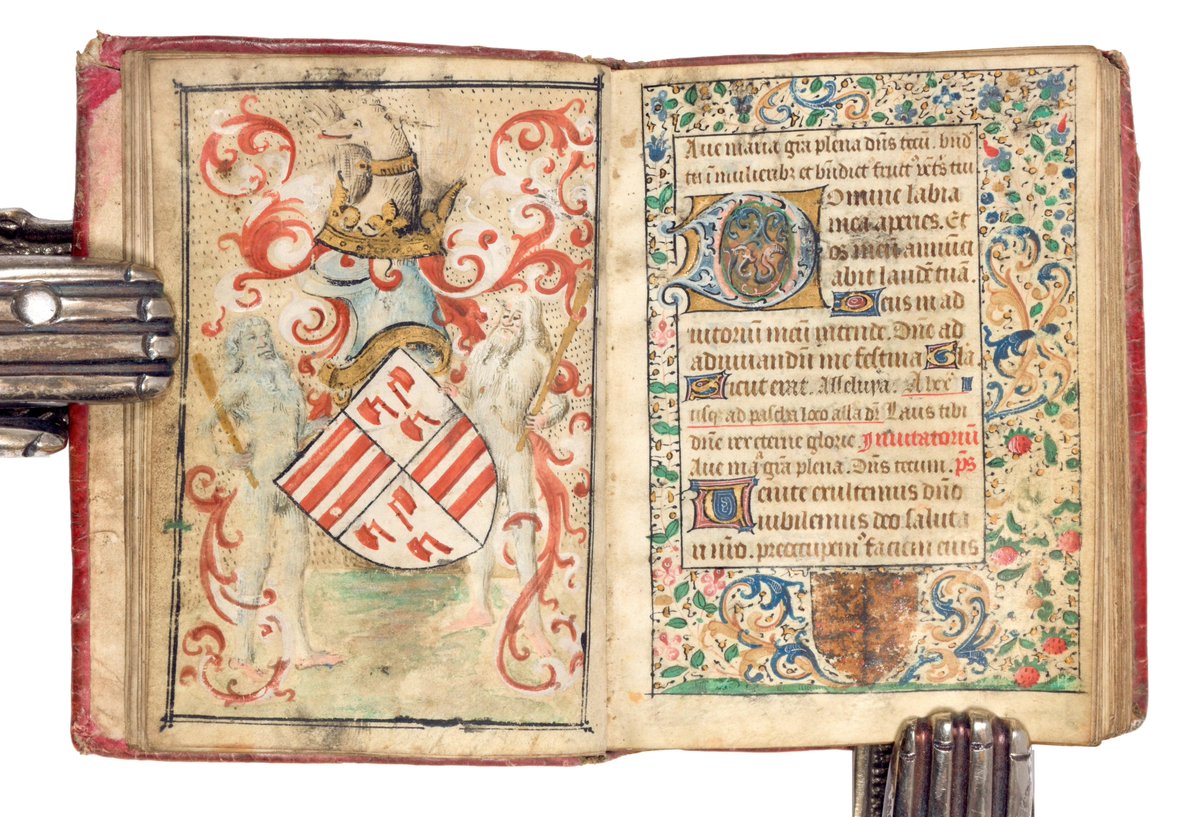 Aue maria gr̃a plena dñs tecũ. bñd
tu ĩ mulieribꝰ et bñdict fruct vẽts tui
Domine labia
mea aperies. Et
os meũ annũci
abit laudẽ tuã.
Deus in ad
iutoriũ meũ intende. Dñe ad
adiuuandũ me festina Gla
Sicut erat. Alleluya. A lxx
usqꝫ ad pascha loco alla dr̃ Laus tibi
dñe rex eterne glorie Inuitatoriũ
Aue mᵃ gr̃a plena. Dñs tecum. p̃s
Uenite exultemus dño
iubilemus deo saluta
ri nr̃o. preoccupemꝰ faciem eius